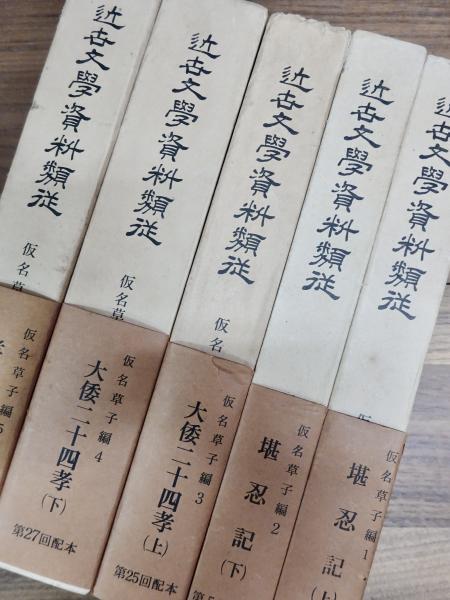 近世文學資料類従
仮名草子編1
堪忍記(上)
近世文學資料類従
仮名草子編2
堪忍記(下)
近世文學資料類従
仮名草
仮名草子編3
大倭二十四孝(上)
第25回配本
近世文學資料類従
仮名草
仮名草子編4
大倭二十四孝(下)
第27回配本
近世文學資料類従
仮名草